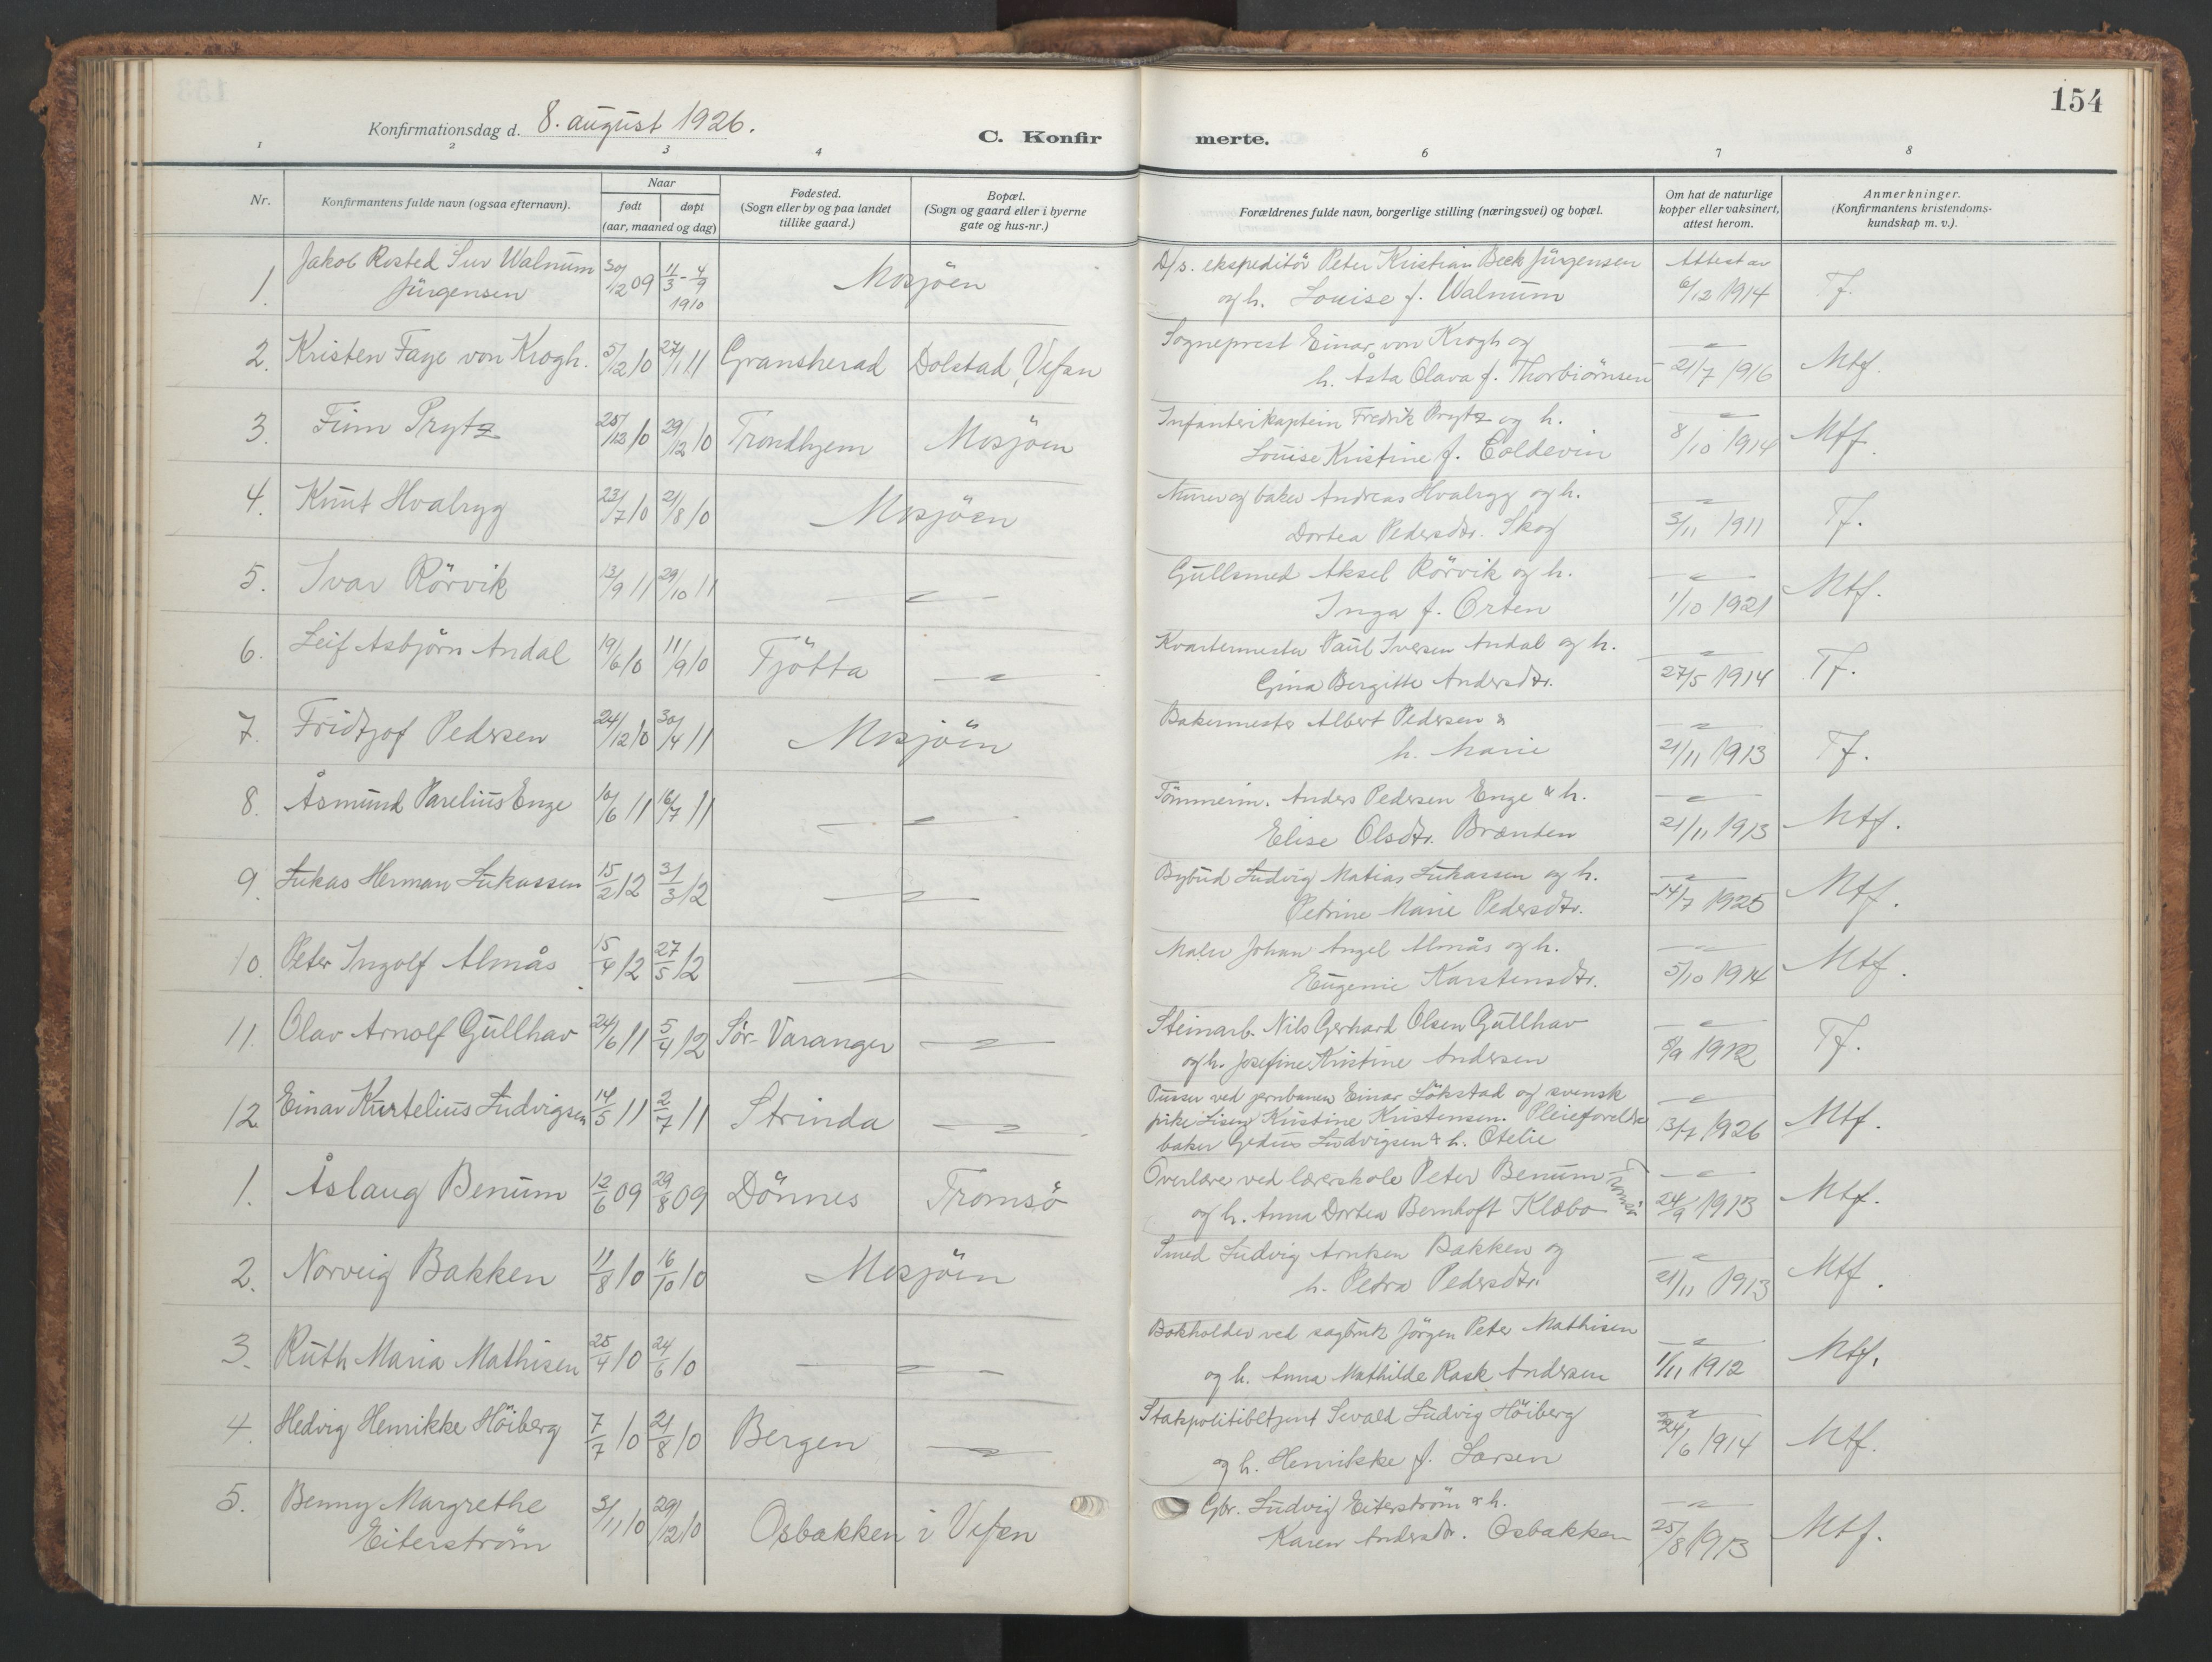 154
Konfirmationsdag d. 8. august 1926.
C. Konfir merte.
1 2 3 4 6 7 8
Nr.
Konfirmantens fulde navn (ogsaa efternavn).
Naar
født døpt
(aar, maaned og dag)
Fødested.
(Sogn eller by og paa landet
tillike gaard.)
Bopæl.
(Sogn og gaard eller i byerne
gate og hus-nr.)
Forældrenes fulde navn, borgerlige stilling (næringsvei) og bopæl.
Om hat de naturlige
kopper eller vaksinert,
attest herom.
Anmerkninger.
(Konfirmantens kristendoms-
kundskap m. v.).
1. Jakob Rosted Walnum
Jürgensen
30/12 09 11/3 - 4/9 1910 Mosjöen
D/s. ekspeditör Peter Kristian Beck Jürgensen
og h. Louise f. Walnum
Attest av
6/12 1914 Tf.
2. Kristen Faye von Krogh. 5/12 10 27/1 11 Gransherad Dolstad, Vefsn
Sogneprest Einar von Krogh og
h. Åsta Olava f. Thorbiörnsen
21/7 1916 Mtf.
3. Finn Prytz 25/13 10 29/12 10 Trondhjem Mosjöen
Infanterikaptein Fredrik Prytz og h.
Louise Kristine f. Coldevin
8/10 1914 Mtf.
4. Knut Hvalryg 23/7 10 21/8 10 Mosjöen
Murer og baker Andreas Hvalryg og h.
Dortea Pedersdtr. Skog
3/11 1911 Tf.
5. Ivar Rörvik 13/9 11 29/10 11 — " —
Gullsmed Aksel Rörvik og h.
Inga f. Orten
1/10 1921 Mtf.
6. Leif Asbjörn Andal 19/6 10 11/9 10 Tjötta — " —
Kvartermester Paul Iversen Andal og h.
Gina Bergitte Andersdtr.
27/5 1914 Tf.
7. Fridtjof Pedersen 24/12 10 30/4 11 Mosjöen
Bakermester Albert Pedersen &
h. Marie
21/11 1913 Tf.
8. Åsmund Parelius Enge 10/6 11 16/7 11 — " —
Tömmerm. Anders Pedersen Enge & h.
Elise Olsdtr. Brænden
21/11 1913 Mtf.
9. Lukas Herman Lukassen 15/2 12 31/3 12 — " —
Bybud Ludvig Matias Lukassen og h.
Petrine Marie Pedersdtr.
14/7 1925 Mtf.
10. Peter Ingolf Almås 15/4 12 27/5 12 — " —
Maler Johan Angel Almås og h.
Eugenie Karstensdtr.
5/10 1914 Mtf.
11. Olav Arnolf Gullhav 24/6 11 5/4 12 Sör-Varanger — " —
Steinarb. Nils Gerhard Olsen Gullhav
og h. Josefine Kristine Andersen
8/9 1912 Tf.
12. Einar Kurtelius Ludvigsen 14/5 11 2/7 11 Strinda — " —
Pusser ved jernbanen Einar Lökstad og svensk
pike Lisen Kristine Kristensen. Pleieforeldre
baker Gedius Ludvigsen & h. Otelie
13/7 1926 Mtf.
1. Åslaug Benum 12/6 09 29/8 09 Dönnes Tromsö
Overlærer ved lærerskole Peter Benum
og h. Anna Dortea Bernhoft Klæbo Tromsö
24/9 1913 Mtf.
2. Norveig Bakken 11/8 10 16/10 10 Mosjöen
Smed Ludvig Arntsen Bakken og
h. Petra Pedersdtr.
21/11 1913 Mtf.
3. Ruth Maria Mathisen 25/4 10 24/6 10 — " —
Bokholder ved sagbruk Jörgen Peter Mathisen
og h. Anna Mathilde Rask Andersen
1/11 1912 Mtf.
4. Hedvig Henrikke Höiberg 7/7 10 21/8 10 Bergen — " —
Statspolitibetjent Sevald Ludvig Höiberg
og h. Henrikke f. Larsen
24/6 1914 Mtf.
5. Benny Margrethe
Eiterström
3/11 10 29/12 10 Osbakken i Vefsn
Gbr. Ludvig Eiterström & h.
Karen Andersdtr. Osbakken
25/8 1913 Mtf.